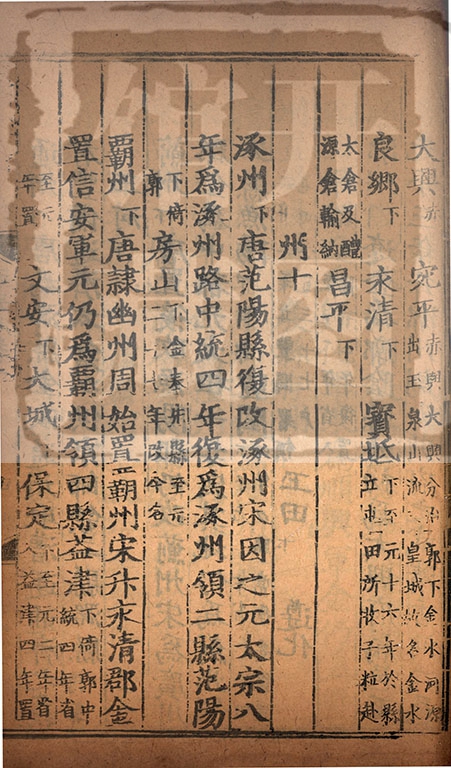 大興赤 宛平赤與大興分治郭下金水河源出玉泉山流皇城故名金水
良鄉下 永清下 寶坻下至元十六年於縣立屯田所收子粒赴
太倉及醴源倉輸納 昌平下
州十
涿州下唐范陽縣復改涿州宋因之元太宗八
年爲涿州路中統四年復爲涿州領二縣范陽
下倚郭 房山下金奉先縣至元二十七年改今名
霸州下唐隸幽州周始置霸州宋升永清郡金
置信安軍元仍爲霸州領四縣益津下倚郭中統四年省
至元年置 文安下大城 保定下至元二年省入益津四年置